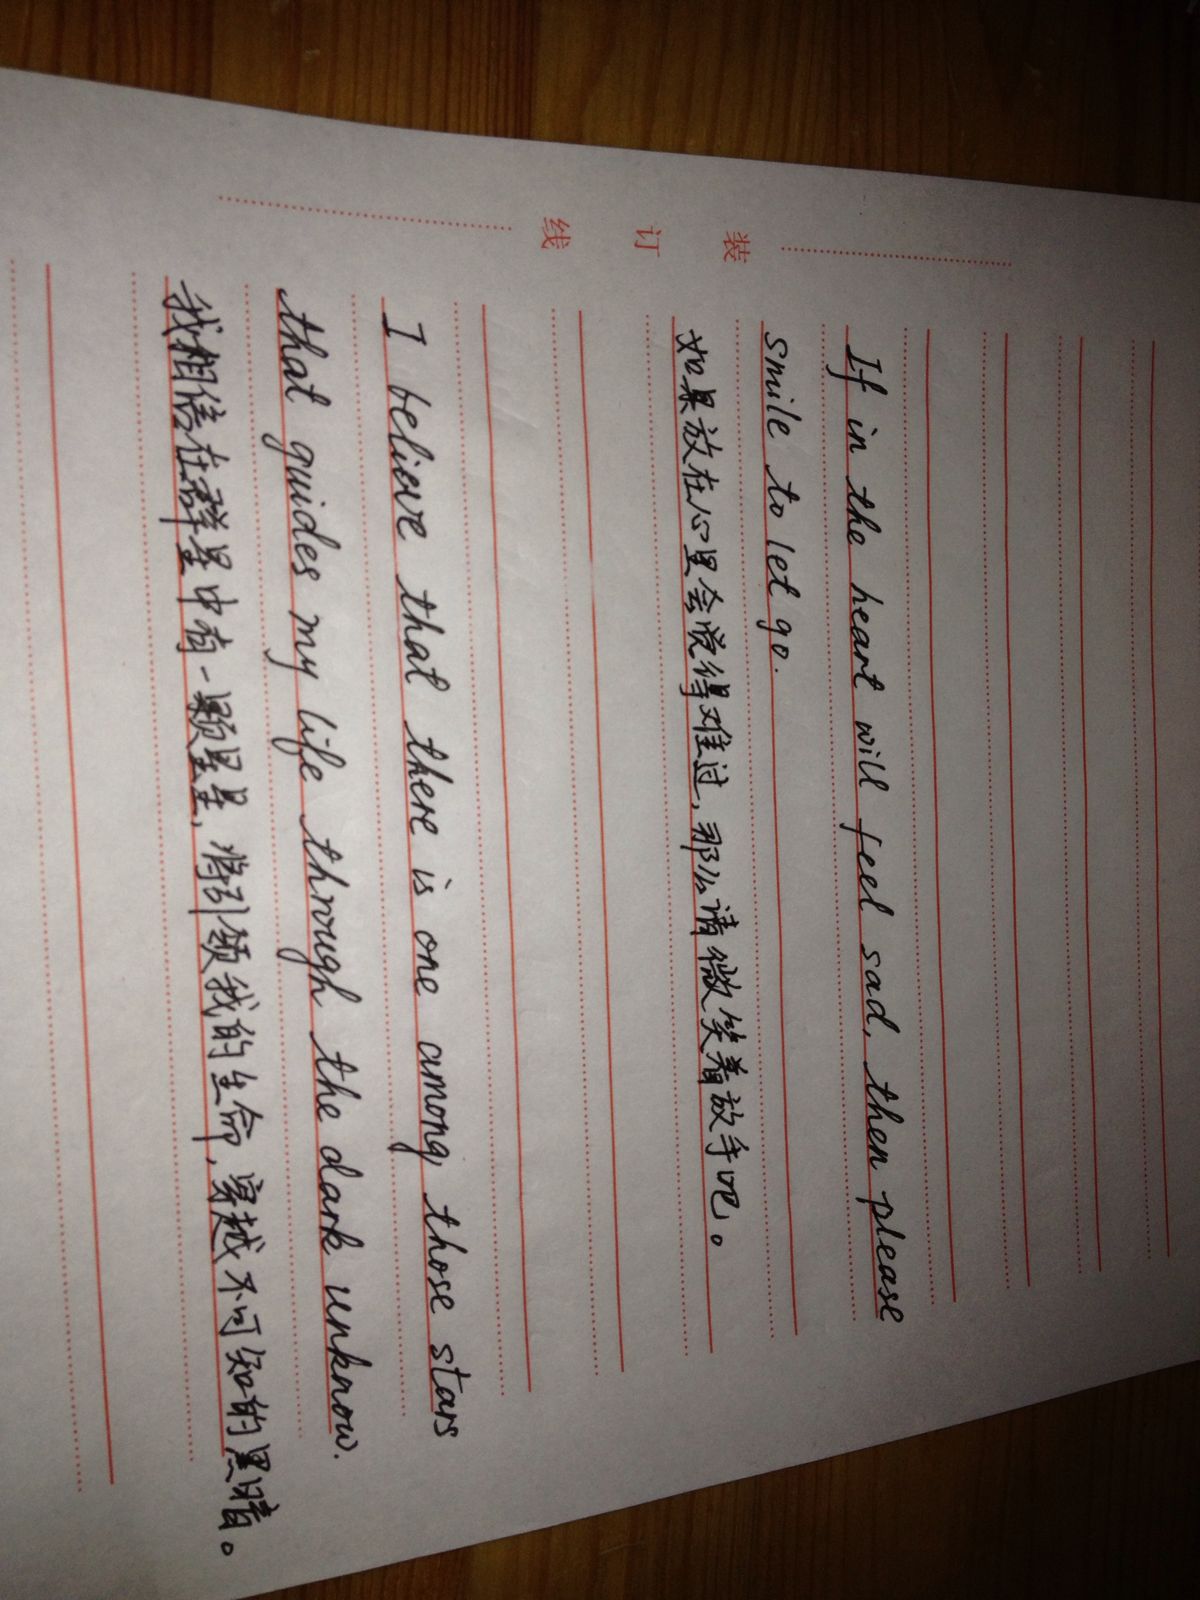 装 订 线
If in the heart will feel sad, then please
smile to let go.
如果放在心里会觉得难过,那么请微笑着放手吧。
I believe that there is one among those stars
that guides my life through the dark unknow.
我相信在群星中有一颗星星,将引领我的生命,穿越不可知的黑暗。